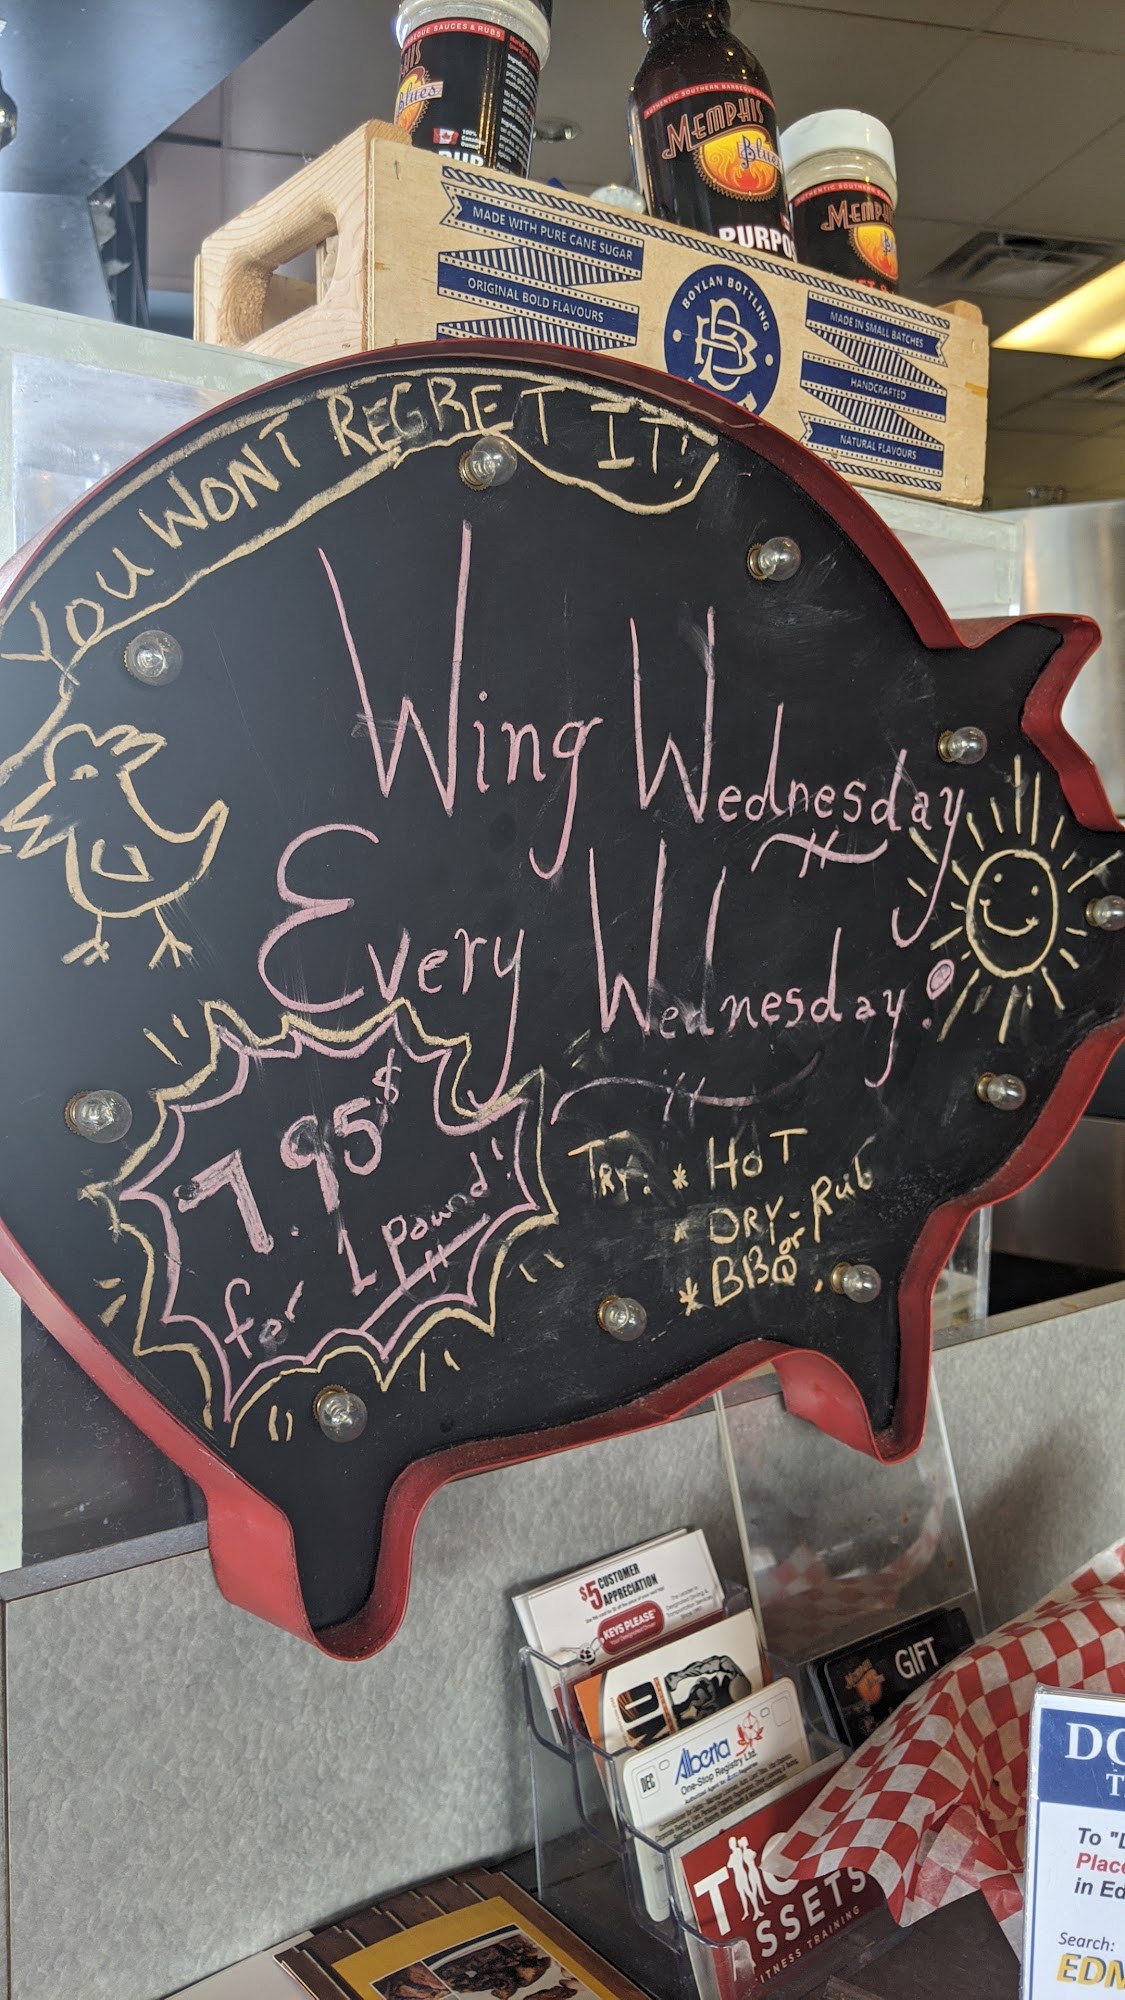 BARBEQUE SAUCES & RUBS
Blues
100%
RUB
AUTHENTIC SOUTHERN BARBEQUE
MEMPHIS
Blues
PURPO
AUTHENTIC SOUTHERN
MEMPHIS
MADE WITH PURE CANE SUGAR
ORIGINAL BOLD FLAVOURS
BOYLAN BOTTLING
MADE IN SMALL BATCHES
HANDCRAFTED
NATURAL FLAVOURS
YOU WONT REGRET IT!
Wing Wednesday
Every Wednesday!
7.95$
for 1 Pound!
TRY: * HOT
* DRY-Rub
or
* BBQ.
$5 CUSTOMER
APPRECIATION
KEYS PLEASE
GIFT
DEC
Alberta
One-Stop Registry Ltd.
ASSETS
FITNESS TRAINING
To "
Place
in Ed
Search:
EDM